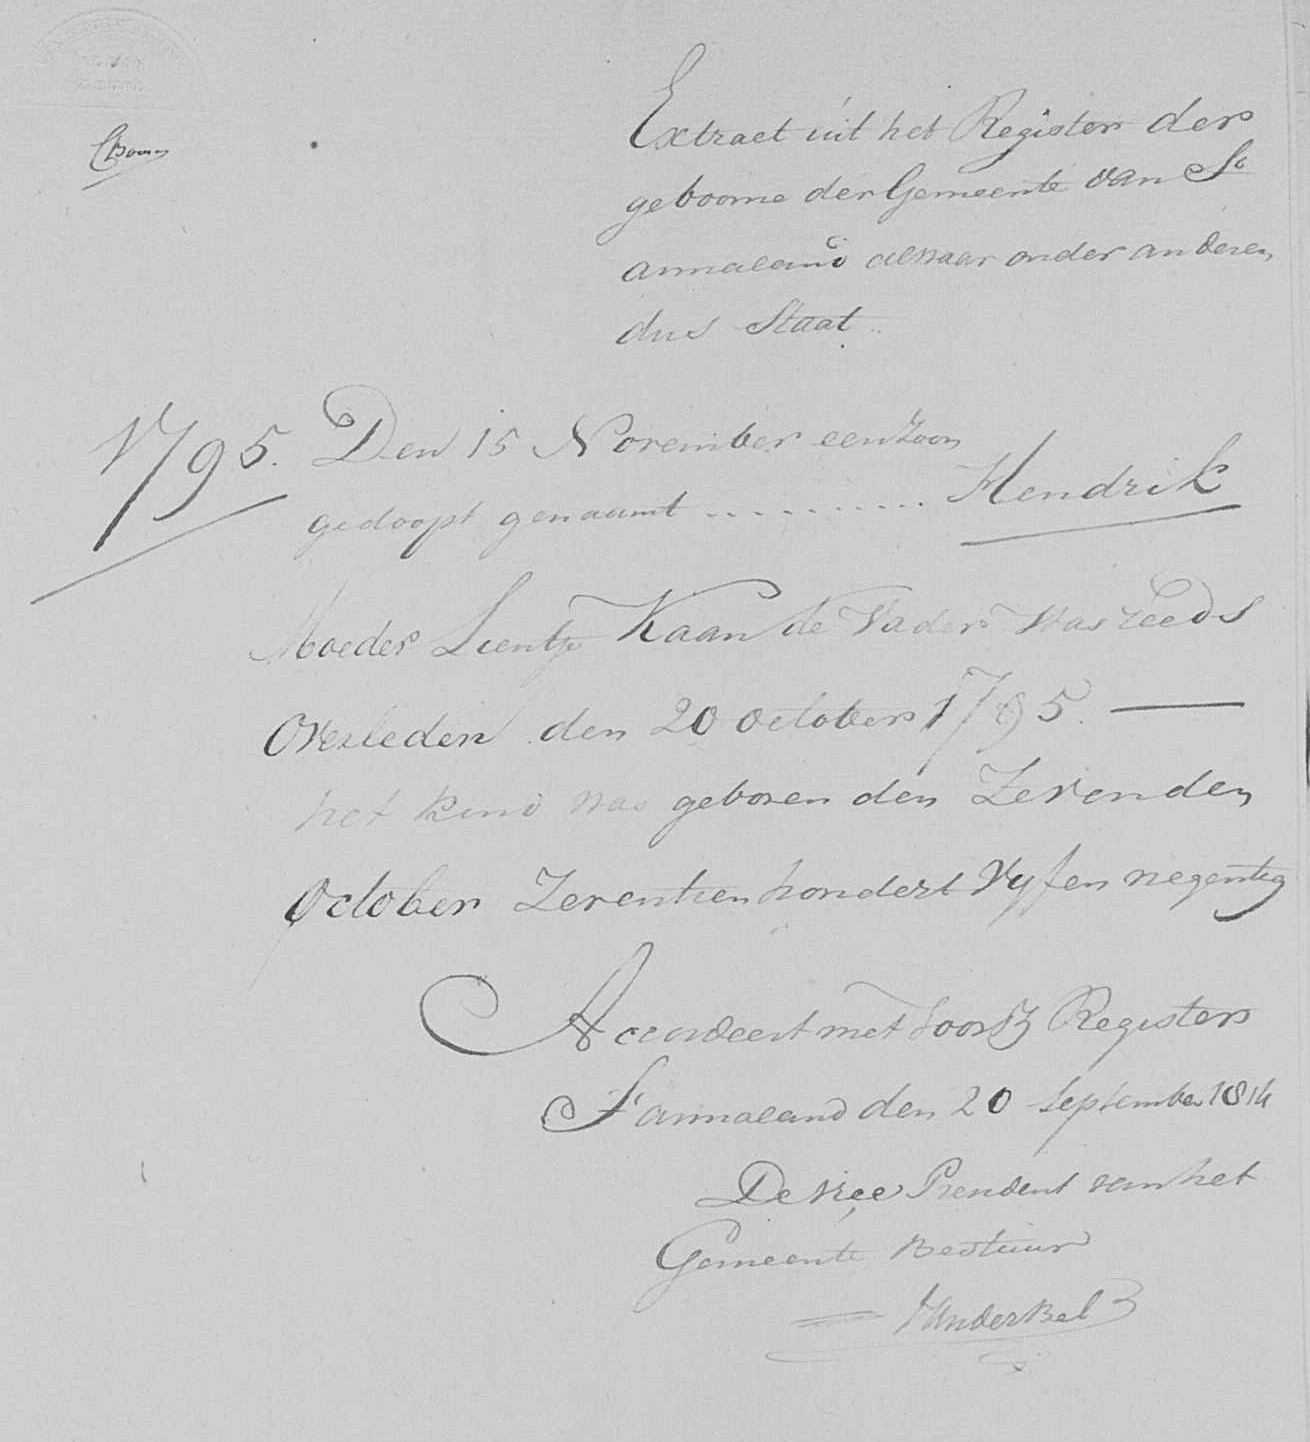 Extract uit het Register der
geboorne der Gemeente van St
annaland alwaar onder anderen
dus Staat
1795. Den 15 November een zoon
gedoopt genaamt .......... Hendrik
Moeder Leentje Kaan de Vader Was reeds
Overleden den 20 october 1795. —
het kind was geboren den Zevenden
October Zeventien hondert Vyf en negentig
Accordeert met voorsz Register
St annaland den 20 september 1814
De vice President van het
Gemeente Bestuur